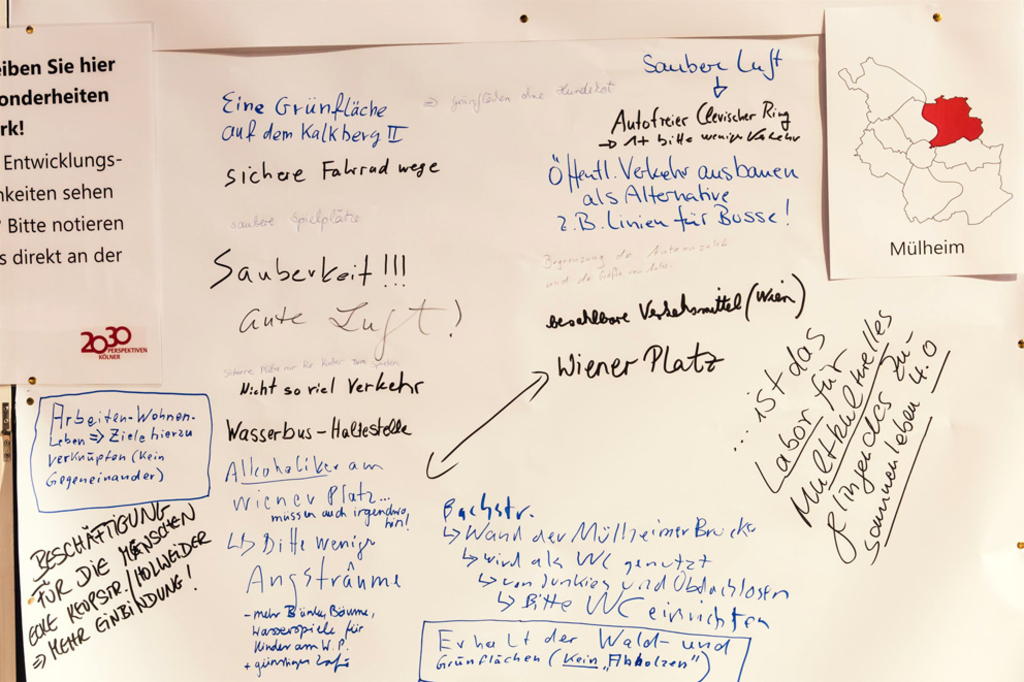 eiben Sie hier
onderheiten
rk!
Entwicklungs-
nkeiten sehen
? Bitte notieren
s direkt an der
2030
PERSPEKTIVEN
KÖLNER
Arbeiten-Wohnen-
Leben => Ziele hierzu
verknüpfen (kein
Gegeneinander)
BESCHÄFTIGUNG
FÜR DIE MENSCHEN
ECKE KEUPSTR./HOLWEIDER
=> MEHR EINBINDUNG!
Eine Grünfläche
auf dem Kalkberg II
=> Grünflächen ohne Hundekot
sichere Fahrradwege
saubere Spielplätze
Sauberkeit!!!
Gute Luft!
Sichere Plätze für Kinder zum Spielen
Nicht so viel Verkehr
Wasserbus-Haltestelle
Allcoholiker am
Wiener Platz...
müssen auch irgendwo
hin!
↳ Bitte wenige
Angsträume
- mehr Bänke, Bäume,
Wasserspiele für
Kinder am W.P.
+ günstiges
Saubere Luft
↓
Autofreier Clevischer Ring
→ 1+ bitte weniger Verkehr
Öffentl. Verkehr ausbauen
als Alternative
z.B. Linien für Busse!
Begrenzung der
und die
bezahlbare Verkehsmittel (Wien)
Wiener Platz
Bachstr.
↳ Wand der Müllheimer Brücke
↳ wird als WC genutzt
↳ von Junkies und Obdachlosen
↳ Bitte WC einrichten
Erhalt der Wald- und
Grünflächen (Kein "Abholzen")
Mülheim
... ist das
Labor für
Multikulturelles
gelingendes Zu-
sammenleben 4.0